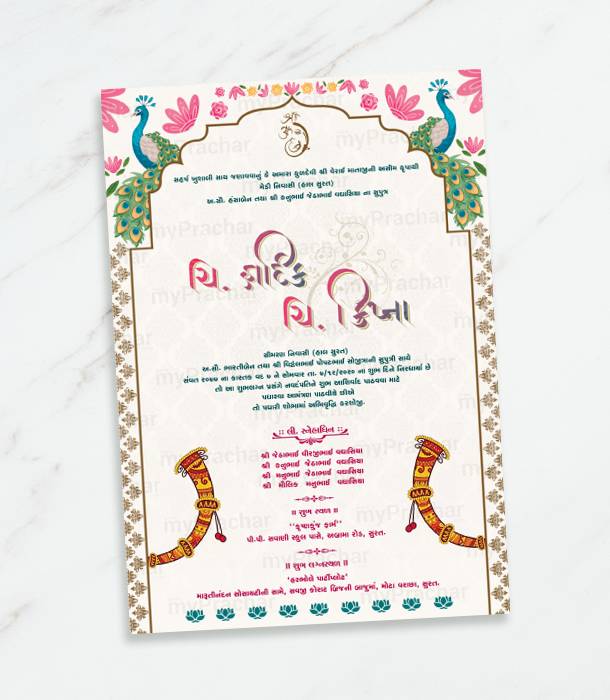 શ્રી
સહર્ષ ખુશાલી સાથ જણાવવાનું કે અમારા કુળદેવી શ્રી વેરાઈ માતાજીની અસીમ કૃપાથી
મેડી નિવાસી (હાલ સુરત)
અ.સૌ. હંસાબેન તથા શ્રી કનુભાઈ જેઠાભાઈ વઘાસિયા ના સુપુત્ર
ચિ. હાર્દિક
ચિ. ક્રિષ્ના
સીમરણ નિવાસી (હાલ સુરત)
અ.સૌ. ભારતીબેન તથા શ્રી વિઠ્ઠલભાઈ પોપટભાઈ સોજીત્રાની સુપુત્રી સાથે
સંવત ૨૦૭૭ ના કારતક વદ ૭ ને સોમવાર તા. ૭/૧૨/૨૦૨૦ ના શુભ દિને નિરધાર્યા છે
તો આ શુભલગ્ન પ્રસંગે નવદંપતિને શુભ આશિર્વાદ પાઠવવા માટે
પધારવા આમંત્રણ પાઠવીએ છીએ
તો પધારી શોભામાં અભિવૃદ્ધિ કરશોજી.
:: લી. સ્નેહાધિન ::
શ્રી જેઠાભાઈ વીરજીભાઈ વઘાસિયા
શ્રી કનુભાઈ જેઠાભાઈ વઘાસિયા
શ્રી મનુભાઈ જેઠાભાઈ વઘાસિયા
શ્રી મૌલિક મનુભાઈ વઘાસિયા
॥ શુભ સ્થળ ॥
"કૃષ્ણકુંજ ફાર્મ"
પી.પી. સવાણી સ્કુલ પાસે, અબ્રામા રોડ, સુરત.
॥ શુભ લગ્નસ્થળ ॥
'હરભોલે પાર્ટીપ્લોટ'
મારૂતીનંદન સોસાયટીની સામે, સવજી કોરાટ બ્રિજની બાજુમાં, મોટા વરાછા, સુરત.
myPrachar